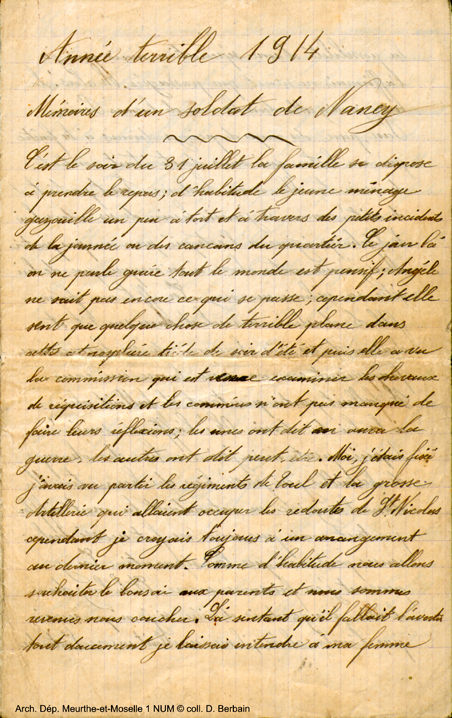 Année terrible 1914
Mémoires d'un soldat de Nancy
C'est le soir du 31 juillet la famille se dispose
à prendre le repas; d'habitude le jeune ménage
gazouille un peu à tort et à travers des petits incidents
de la journée ou des cancans du quartier. Ce jour là
on ne parle guère tout le monde est pensif; Angèle
ne sait pas encore ce qui se passe; cependant elle
sent que quelque chose de terrible plane dans
cette atmosphère tiède de soir d'été et puis elle a vu
la commission qui est venue examiner les chevaux
de réquisitions et les commères n'ont pas manqué de
faire leurs réflexions; les unes ont dit on aura la
guerre. les autres ont dit peut être. Moi, j'étais fixé
j'avais vu partir les régiments de Toul et la grosse
Artillerie qui allaient occuper les redoutes de St Nicolas
cependant je croyais toujours à un arrangement
au dernier moment. Comme d'habitude nous allons
souhaiter le bonsoir aux parents et nous sommes
revenus nous coucher. Là sentant qu'il fallait l'avertir
tout doucement je laissai entendre à ma femme
Arch. Dép. Meurthe-et-Moselle 1 NUM © coll. D. Berbain